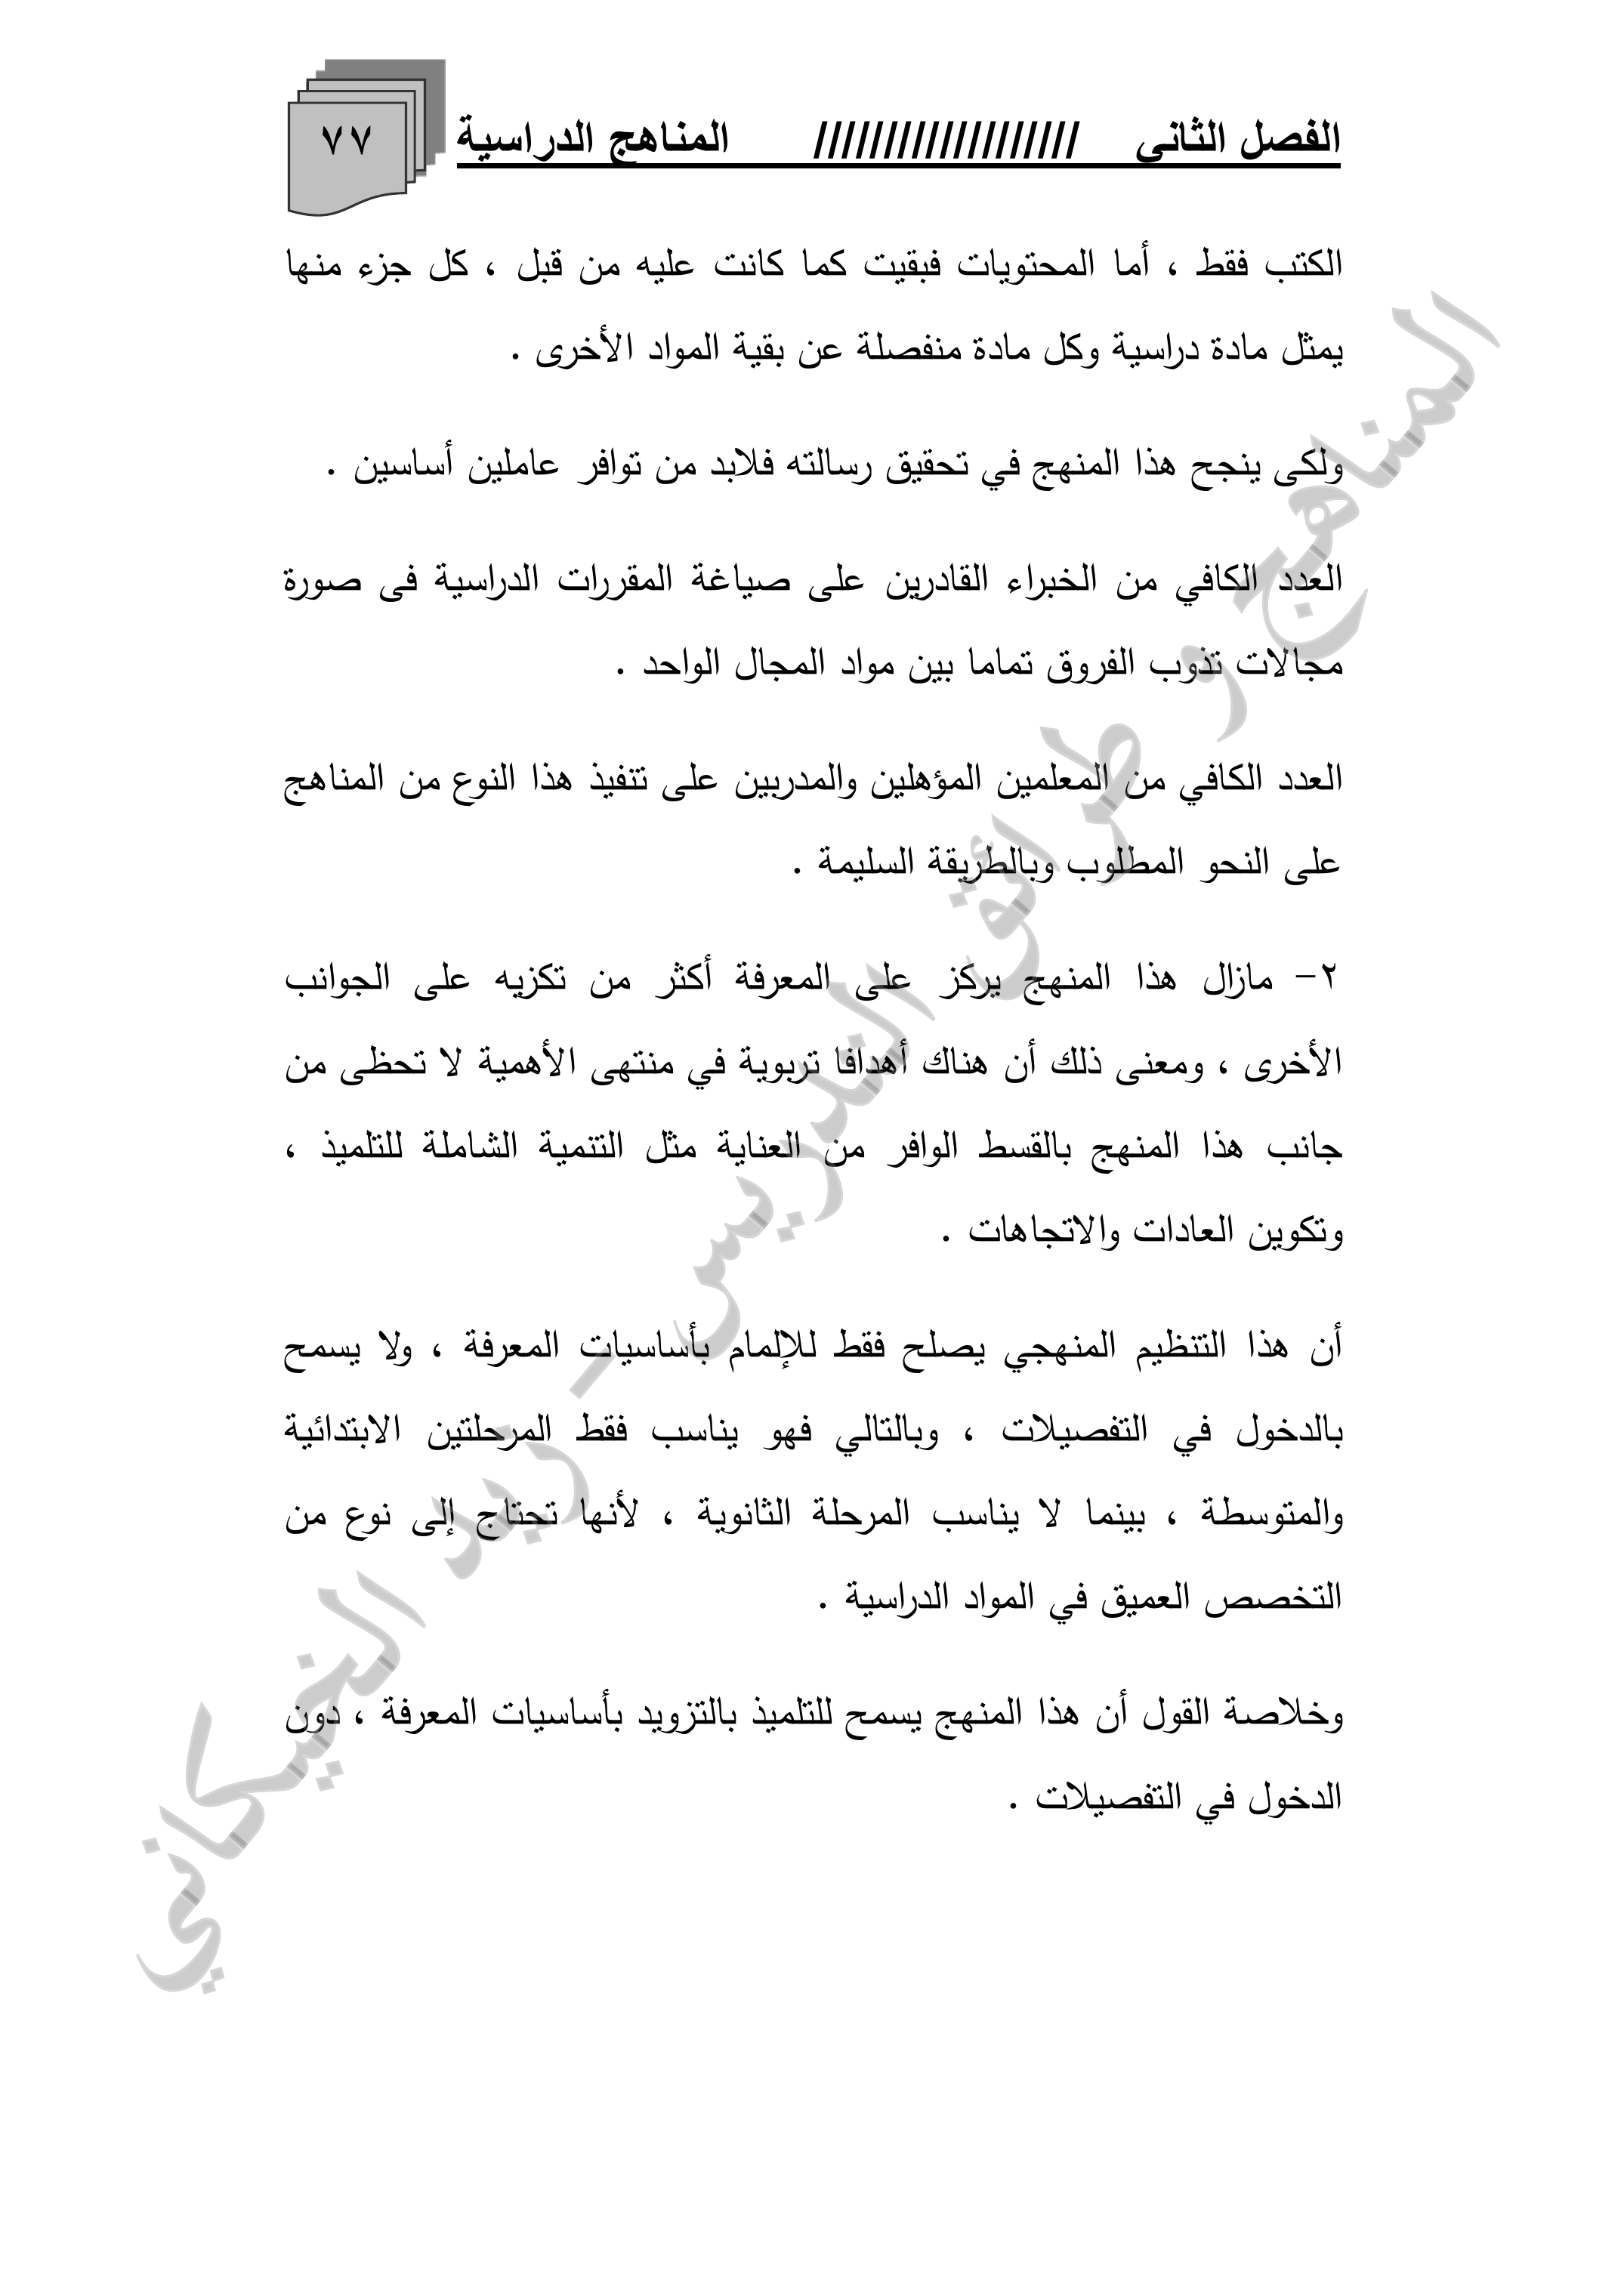 الفصل الثاني /////////////////// المناهج الدراسية ٧٧
الكتب فقط ، أما المحتويات فبقيت كما كانت عليه من قبل ، كل جزء منها
يمثل مادة دراسية وكل مادة منفصلة عن بقية المواد الأخرى .
ولكى ينجح هذا المنهج في تحقيق رسالته فلابد من توافر عاملين أساسين .
العدد الكافي من الخبراء القادرين على صياغة المقررات الدراسية فى صورة
مجالات تذوب الفروق تماما بين مواد المجال الواحد .
العدد الكافي من المعلمين المؤهلين والمدربين على تنفيذ هذا النوع من المناهج
على النحو المطلوب وبالطريقة السليمة .
٢- مازال هذا المنهج يركز على المعرفة أكثر من تكزيه على الجوانب
الأخرى ، ومعنى ذلك أن هناك أهدافا تربوية في منتهى الأهمية لا تحظى من
جانب هذا المنهج بالقسط الوافر من العناية مثل التنمية الشاملة للتلميذ ،
وتكوين العادات والاتجاهات .
أن هذا التنظيم المنهجي يصلح فقط للإلمام بأساسيات المعرفة ، ولا يسمح
بالدخول في التفصيلات ، وبالتالي فهو يناسب فقط المرحلتين الابتدائية
والمتوسطة ، بينما لا يناسب المرحلة الثانوية ، لأنها تحتاج إلى نوع من
التخصص العميق في المواد الدراسية .
وخلاصة القول أن هذا المنهج يسمح للتلميذ بالتزويد بأساسيات المعرفة ، دون
الدخول في التفصيلات .
المناهج و طرائق التدريس - ريد الخيكاني